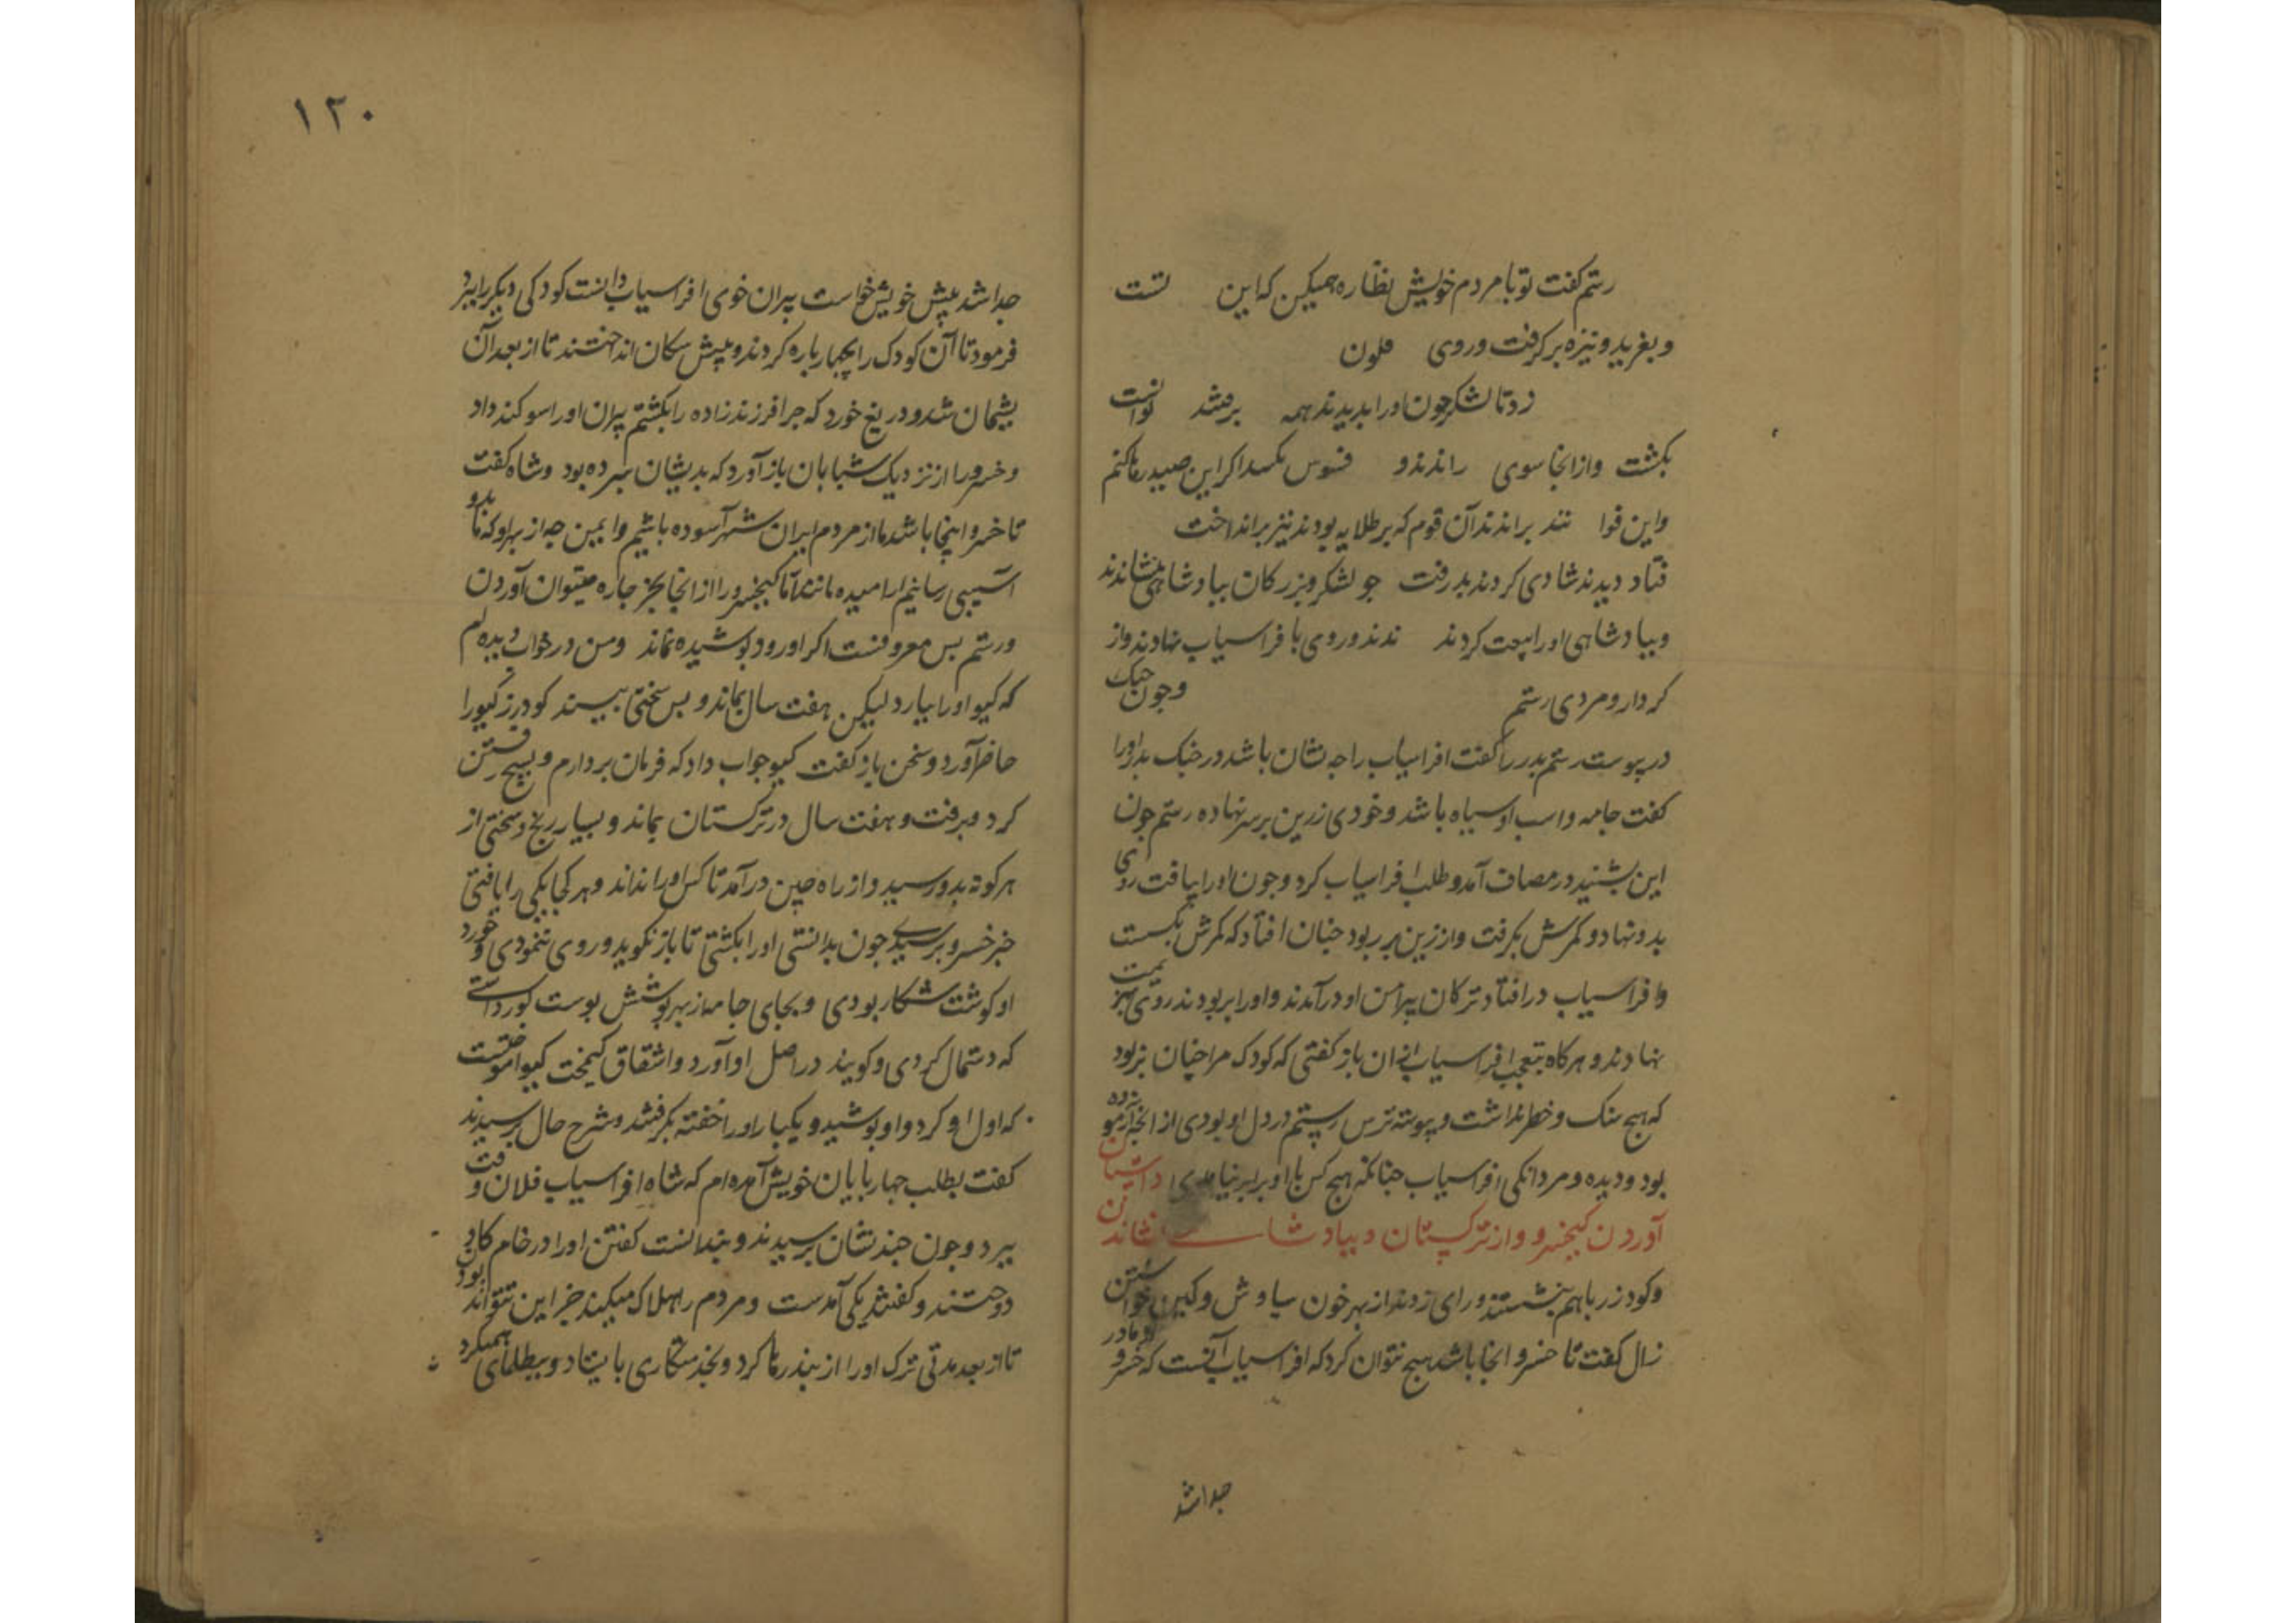 رستم کفت تو با مردم خویش نظاره همیکن که این تست
و بغرید و نیزه بر کرفت و روی ملون
رد تا لشکر جون او را بدیدند همه بر مشد توانست
بکشت و از انجا سوی راندند و فسوس اکر این صید رها کنم
و این قوا نند براندند آن قوم که بر طلایه بودند نیز برانداخت
فتاد دیدند شادی کردند بدرفت جو لشکر و بزرکان بپادشاهی بنشاندند
و بپادشاهی او را بیعت کردند ندند و روی با فراسیاب نهادند و از
کردار و مردی رستم وجون جنک
در پیوست رستم پدر را کفت افراسیاب را جه نشان باشد در جنک بداورا
کفت جامه و اسب او سیاه باشد و خودی زرین بر سر نهاده رستم جون
این بشنید در مصاف آمد و طلب افراسیاب کرد و جون او را بیافت روی
بدو نهاد و کمرش بکرفت و از زین بر ربود جنان افتاد که کمرش بکسست
و افراسیاب در افتاد ترکان پیرامن او در آمدند و او را بربودند روی بهزیمت
نهادند و هرکاه بتعجب افراسیاب از آن باز کفتی که کودک مرا جنان بربود
که هیج سنک و خطر نداشت و پیوسته ترس رستم در دل او بودی از انجه آزموده
بود و دیده و مردانکی افراسیاب جنانکه هیج کس با او برابر نیامدی داستان
آوردن کیخسرو از ترکستان و بپادشاهی نشاندن
و کودرز با هم بنشستند و رای زدند از بهر خون سیاوش و کین خواستن
زال کفت تا خسرو انجا باشد هیج نتوان کرد که افراسیاب آنست که خسرو از مادر
جدا شد
۱۲۰
جدا شد پیش خویش خواست پیران خوی افراسیاب دانست کودکی دیکر را ببرد
فرمود تا آن کودک را بجهار پاره کردند و پیش سکان انداختند تا از بعد آن
پشیمان شد و دریغ خورد که جرا فرزندزاده را بکشتم پیران او را سوکند داد
و خسرو را از نزدیک شبانان باز آورد که بدیشان سپرده بود و شاه کفت
تا خسرو اینجا باشد ما از مردم ایران شهر آسوده باشیم و ایمن جه از بهر او که ما بدو
آسیبی رسانیم آرامیده مانند اما کیخسرو را از انجا بجز جاره میتوان آوردن
و رستم بس معروفست اکر او رود پوشیده نماند و من در خواب دیده ام
که کیو او را بیارد لیکن هفت سال بماند و بس سختی ببیند کودرز کیو را
حاضر آورد و سخن باز کفت کیو جواب داد که فرمان بردارم و بسیج رفتن
کرد و برفت و هفت سال در ترکستان بماند و بسیار رنج و سختی از
هر کونه بدو رسید و از راه جین در آمد تا کس او را نداند و هر کجا یکی را یافتی
خبر خسرو پرسیدی جون بدانستی او را بکشتی تا باز نکوید و روی ننمودی و خورد
او کوشت شکار بودی و بجای جامه از بهر پوشش پوست کور داشتی
که دستمال کردی و کویند در اصل او آورد و اشتقاق کیمخت کیو آموختست
که اول او کرد و او پوشید و یکبار او را خفته بکرفتند و شرح حال پرسیدند
کفت بطلب جهارپایان خویش آمده ام که شاه افراسیاب فلان وقت
ببرد و جون جند نشان پرسیدند و بندانست کفتن او را در خام کاو
دوختند و کفتند یکی آمدست و مردم را هلاک میکند جز این نتواند بودن
تا از بعد مدتی ترک او را از بند رها کرد و بخدمتکاری بایستاد و بیطلبای همیکرد